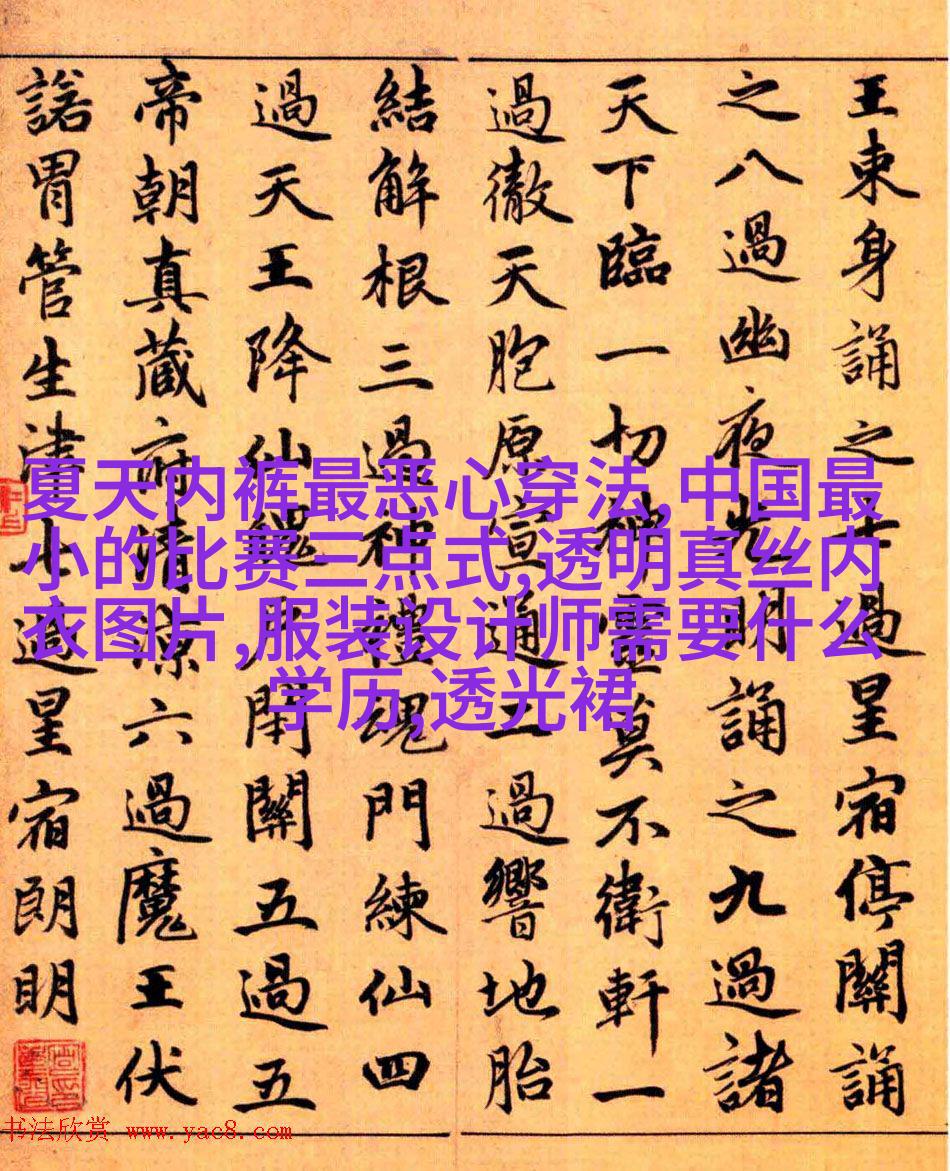 王東身誦之七過星宿停關誦
之八過幽夜光明誦之九過諸
天下臨一切神靈莫不衛軒一
過徹天胞原宣通二過響地胎
結解根三過神禮魂門練仙四
過天王降仙閉關五過五
帝朝真藏府清涼六過魔王伏
諾胃管生津七過星宿朗明
夏天内裤最恶心穿法,中国最
小的比赛三点式,透明真丝内
衣图片,服装设计师需要什么
学历,透光裙
书法欣赏 www.yac8.com